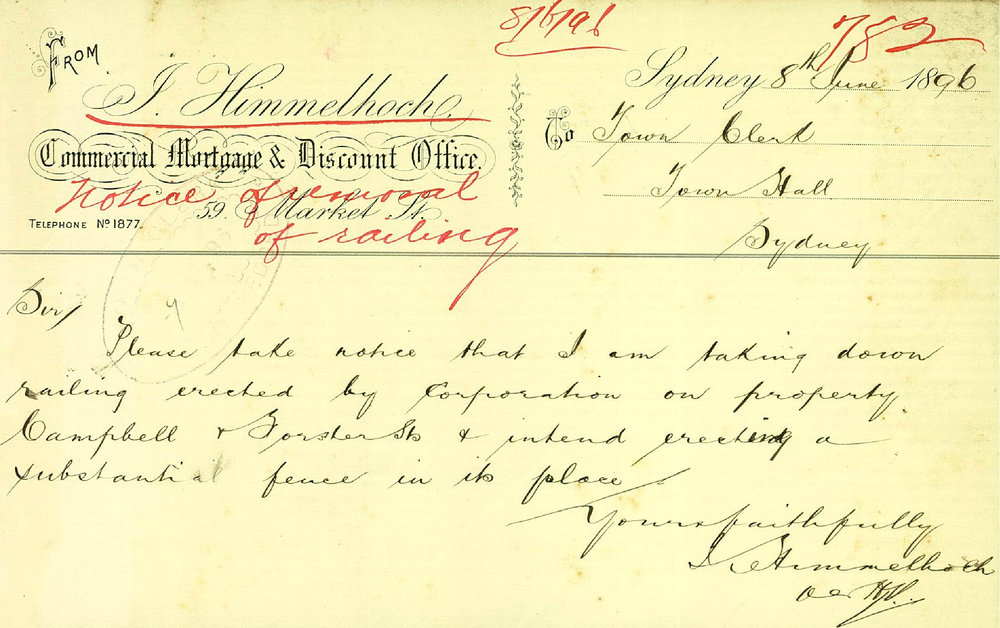 8/6/96
782
FROM
I. Himmelhoch.
Commercial Mortgage & Discount Office.
59. Market St.
TELEPHONE No 1877.
Notice of removal
of railing
Sydney 8th June 1896
To Town Clerk
Town Hall
Sydney
Sir/
Please take notice that I am taking down
railing erected by Corporation on property
Campbell & Forster Sts & intend erecting a
substantial fence in its place
Yours faithfully
I. Himmelhoch